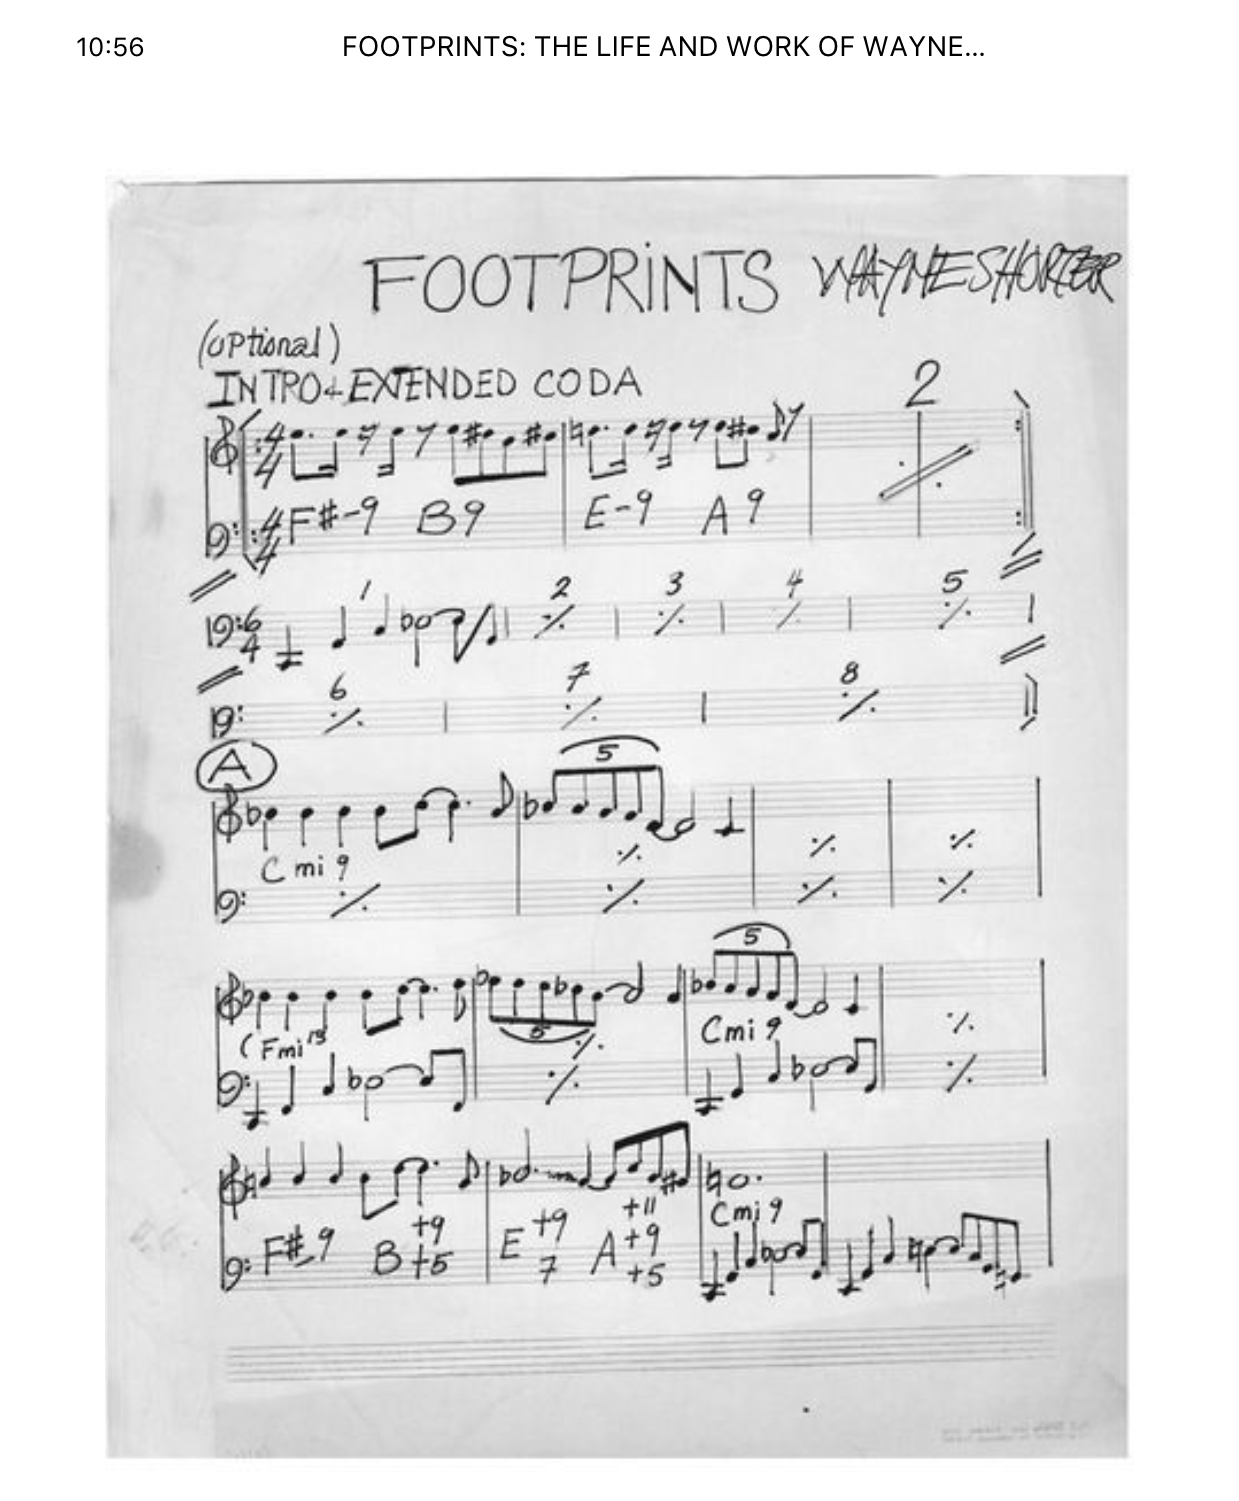 10:56 FOOTPRINTS: THE LIFE AND WORK OF WAYNE...
FOOTPRINTS WAYNE SHORTER
(optional)
INTRO + EXTENDED CODA
2
4 4
F#-9 B9 E-9 A9
4 4
1 2 3 4 5
6 4
6 7 8
A
5
C mi 9
5
(Fmi 13 5 Cmi 9
+9 +9 +11 Cmi 9
F#-9 B +5 E 7 A +9 +5